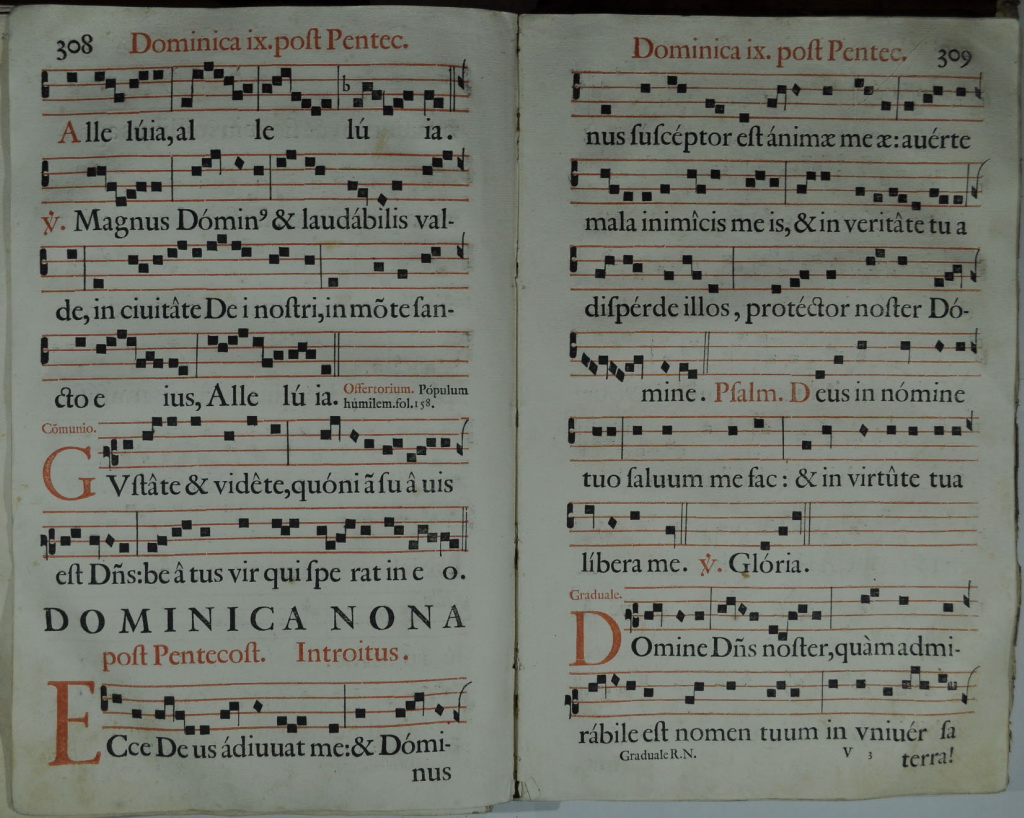 308 Dominica ix. poſt Pentec.
Alle lúia, al le lú ia.
℣. Magnus Dómin⁹ & laudábilis val-
de, in ciuitâte De i noſtri, in mõte ſan-
cto e ius, Alle lú ia. Offertorium. Pópulum
húmilem. fol. 158.
Cõmunio.
GVſtâte & vidête, quóni ã ſu â uis
eſt Dñs: be â tus vir qui ſpe rat in e o.
DOMINICA NONA
poſt Pentecoſt. Introitus.
ECce De us ádiuuat me: & Dómi-
nus
Dominica ix. poſt Pentec. 309
nus ſuſcéptor eſt ánimæ me æ: auérte
mala inimîcis me is, & in veritâte tu a
diſpérde illos, protéctor noſter Dó-
mine. Pſalm. Deus in nómine
tuo ſaluum me fac: & in virtûte tua
líbera me. ℣. Glória.
Graduale.
DOmine Dñs noſter, quàm admi-
rábile eſt nomen tuum in vniuér ſa
Graduale R.N. V 3 terra!